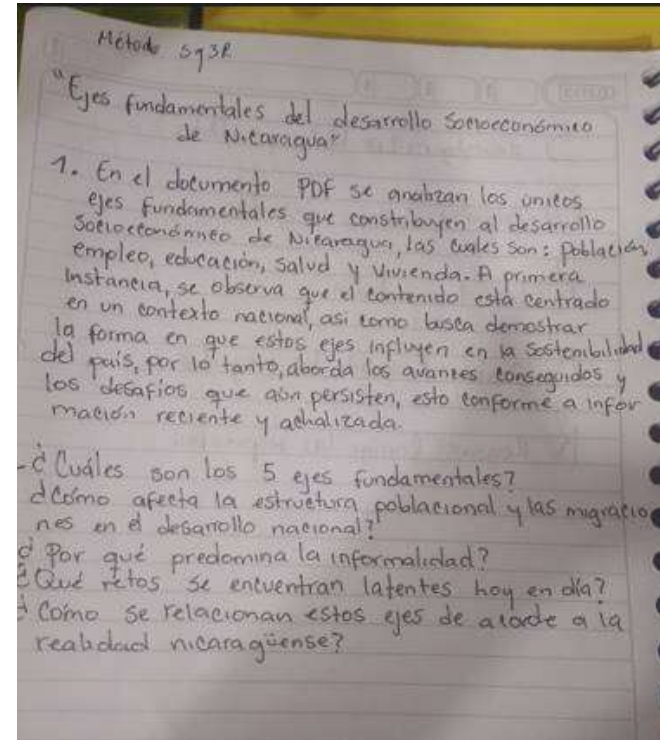 Método Sq3R
"Ejes fundamentales del desarrollo Socioeconómico
de Nicaragua"
1. En el documento PDF se analizan los únicos
ejes fundamentales que constribuyen al desarrollo
Socioeconómico de Nicaragua, las cuales son: Población,
empleo, educación, salud y vivienda. A primera
instancia, se observa que el contenido está centrado
en un contexto nacional, asi como busca demostrar
la forma en que estos ejes influyen en la sostenibilidad
del país, por lo tanto, aborda los avances conseguidos y
los desafíos que aún persisten, esto conforme a infor
mación reciente y actualizada.
- ¿Cuáles son los 5 ejes fundamentales?
¿Cómo afecta la estructura poblacional y las migracio
nes en el desarrollo nacional?
¿Por qué predomina la informalidad?
¿Qué retos se encuentran latentes hoy en día?
¿Cómo se relacionan estos ejes de acorde a la
realidad nicaragüense?